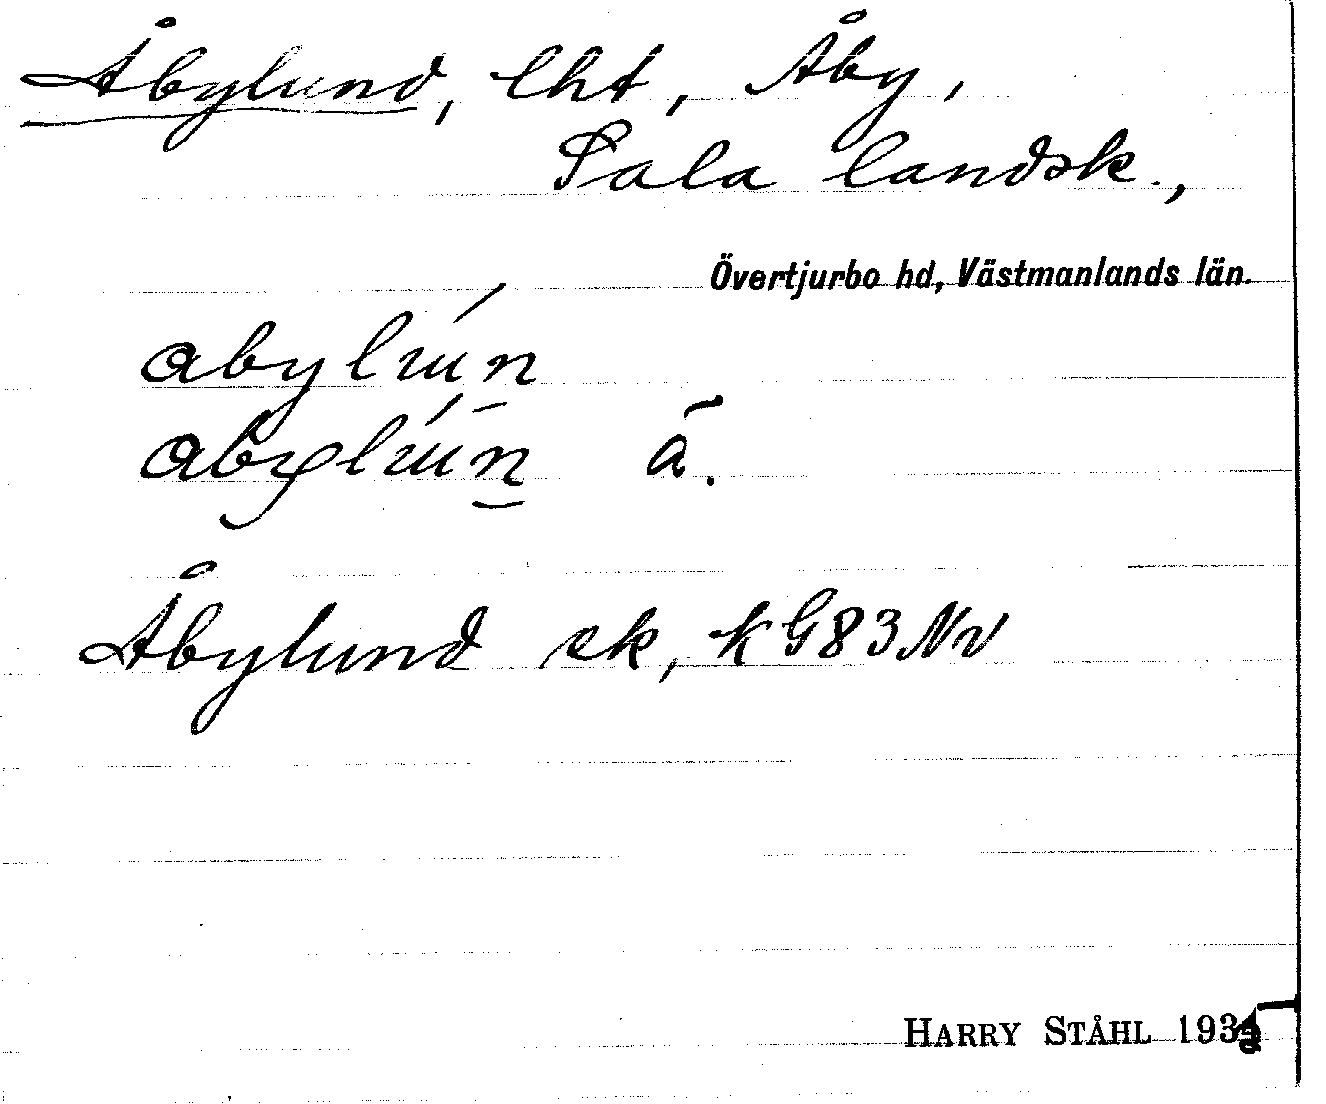 Åbylund, lht, Åby,
Sala landsk.,
Övertjurbo hd, Västmanlands län.
å.
Åbylund ek, kG83Nv
HARRY STÅHL